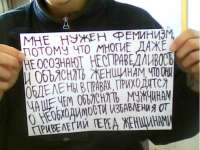 МНЕ НУЖЕН ФЕМИНИЗМ,
ПОТОМУ ЧТО МНОГИЕ ДАЖЕ
НЕОСОЗНАЮТ НЕСПРАВЕДЛИВОСТЬ
И ОБЪЯСНЯТЬ ЖЕНЩИНАМ, ЧТО ОНИ
ОБДЕЛЕНЫ В ПРАВАХ, ПРИХОДИТСЯ
ЧАЩЕ, ЧЕМ ОБЪЯСНЯТЬ МУЖЧИНАМ
О НЕОБХОДИМОСТИ ИЗБАВЛЕНИЯ ОТ
ПРИВЕЛЕГИЙ ПЕРЕД ЖЕНЩИНАМИ